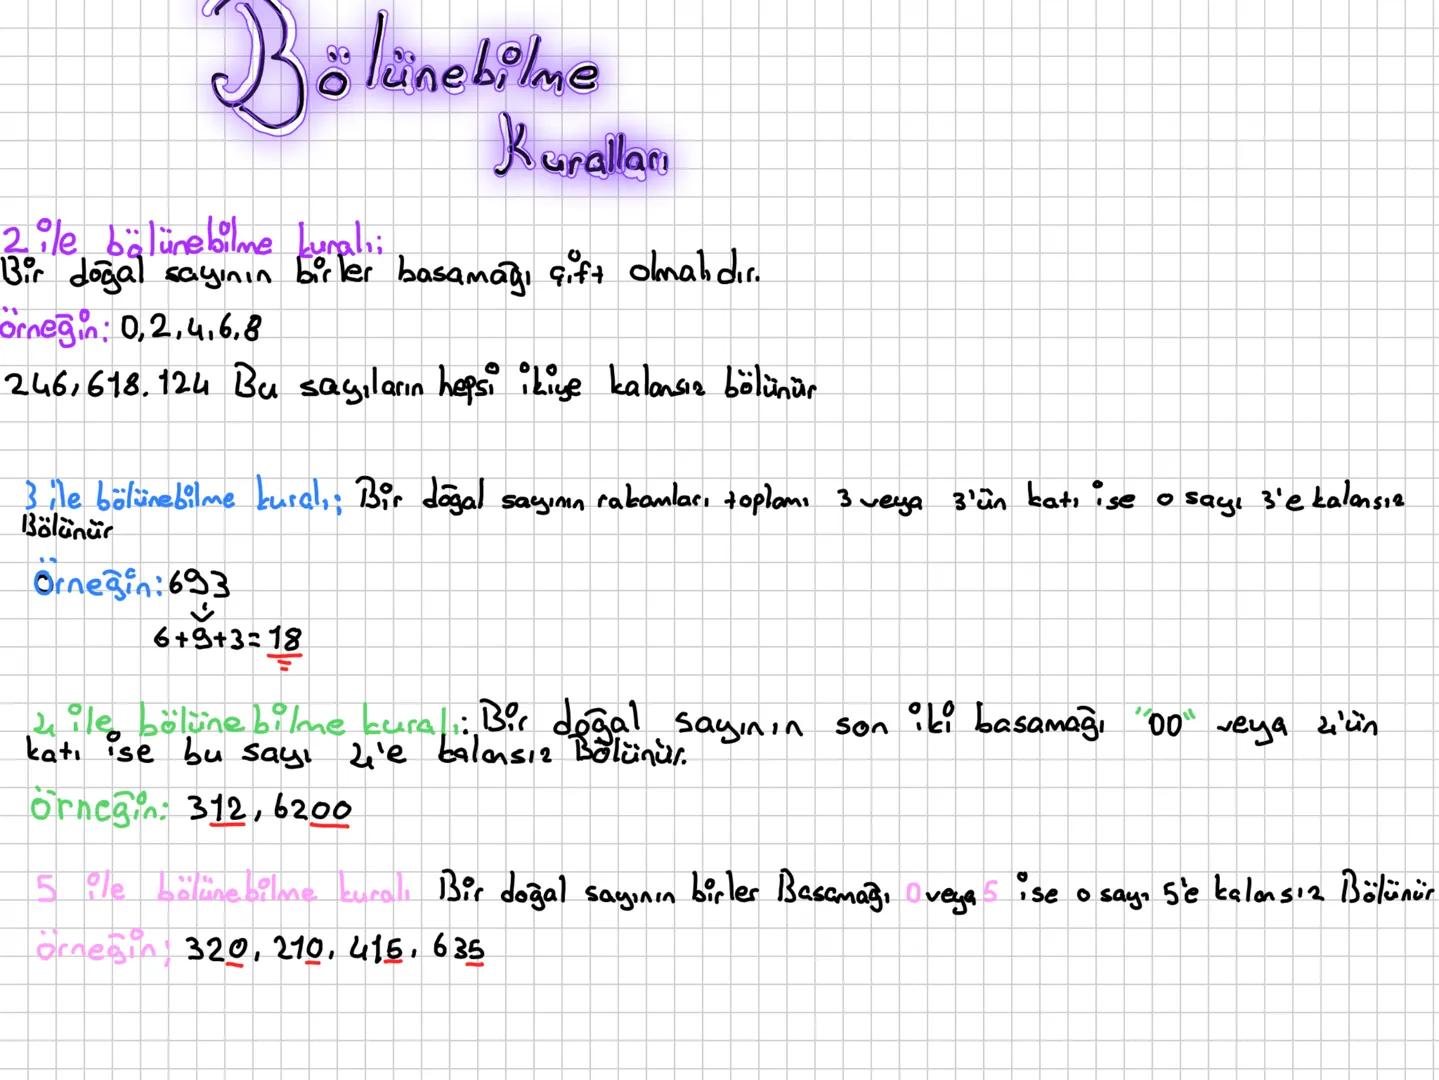 Bölünebilme
Kuralları
2 ile bölünebilme kuralı;
Bir doğal sayının birler basamağı çift olmalıdır.
örneğin: 0,2,4,6,8
246,618.124 Bu sayıların hepsi ikiye kalansız bölünür
3 ile bölünebilme kuralı; Bir doğal sayının rakamları toplamı 3 veya 3'ün katı ise o sayı 3'e kalansız
Bölünür
Örneğin: 693
6+9+3=18
4 ile bölünebilme kuralı: Bir doğal sayının son iki basamağı "00" veya 4'ün
katı ise bu sayı 4'e kalansız Bölünür.
örneğin: 312, 6200
5 ile bölünebilme kuralı Bir doğal sayının birler Basamağı 0 veya 5 ise o sayı 5'e kalansız Bölünür
örneğin; 320, 210, 415, 635